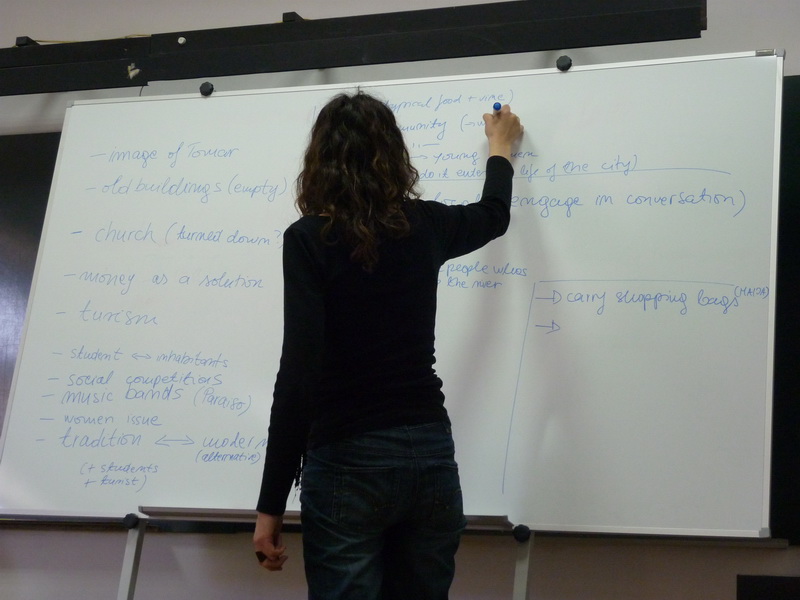 - image of Tomar
- old buildings (empty)
- church (turned down?
- money as a solution
- turism
- student ↔ inhabitants
- social competitions
- music bands (Paraiso)
- women issue
- tradition ↔ modern
(alternative)
(+ students
+ turist)
food + wine)
→ young
do it life of the city)
engage in conversation)
people
the river
→ carry shopping bags
→